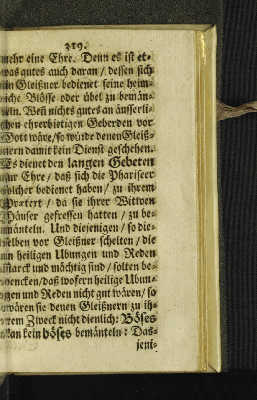 319.
mehr eine Ehre. Denn es ist et-
was gutes auch daran / dessen sich
ein Gleißner bedienet seine heim-
liche Blösse oder übel zu bemän-
teln. Weñ nichts gutes an äusserli-
chen ehrerbietigen Geberden vor
Gott wäre / so würde denen Gleiß-
nern damit kein Dienst geschehen.
Es dienet den langen Gebeten
zur Ehre / daß sich die Phariseer
solcher bedienet haben / zu ihrem
Prætext / da sie ihrer Wittwen
Häuser gefressen hatten / zu be-
mänteln. Und diejenigen / so die-
selben vor Gleißner schelten / die
in heiligen Ubungen und Reden
starck und mächtig sind / solten be-
dencken / daß wofern heilige Ubun-
gen und Reden nicht gut wären / so
wären sie denen Gleißnern zu ih-
rem Zweck nicht dienlich: Böses
kan kein böses bemänteln: Das-
jeni-